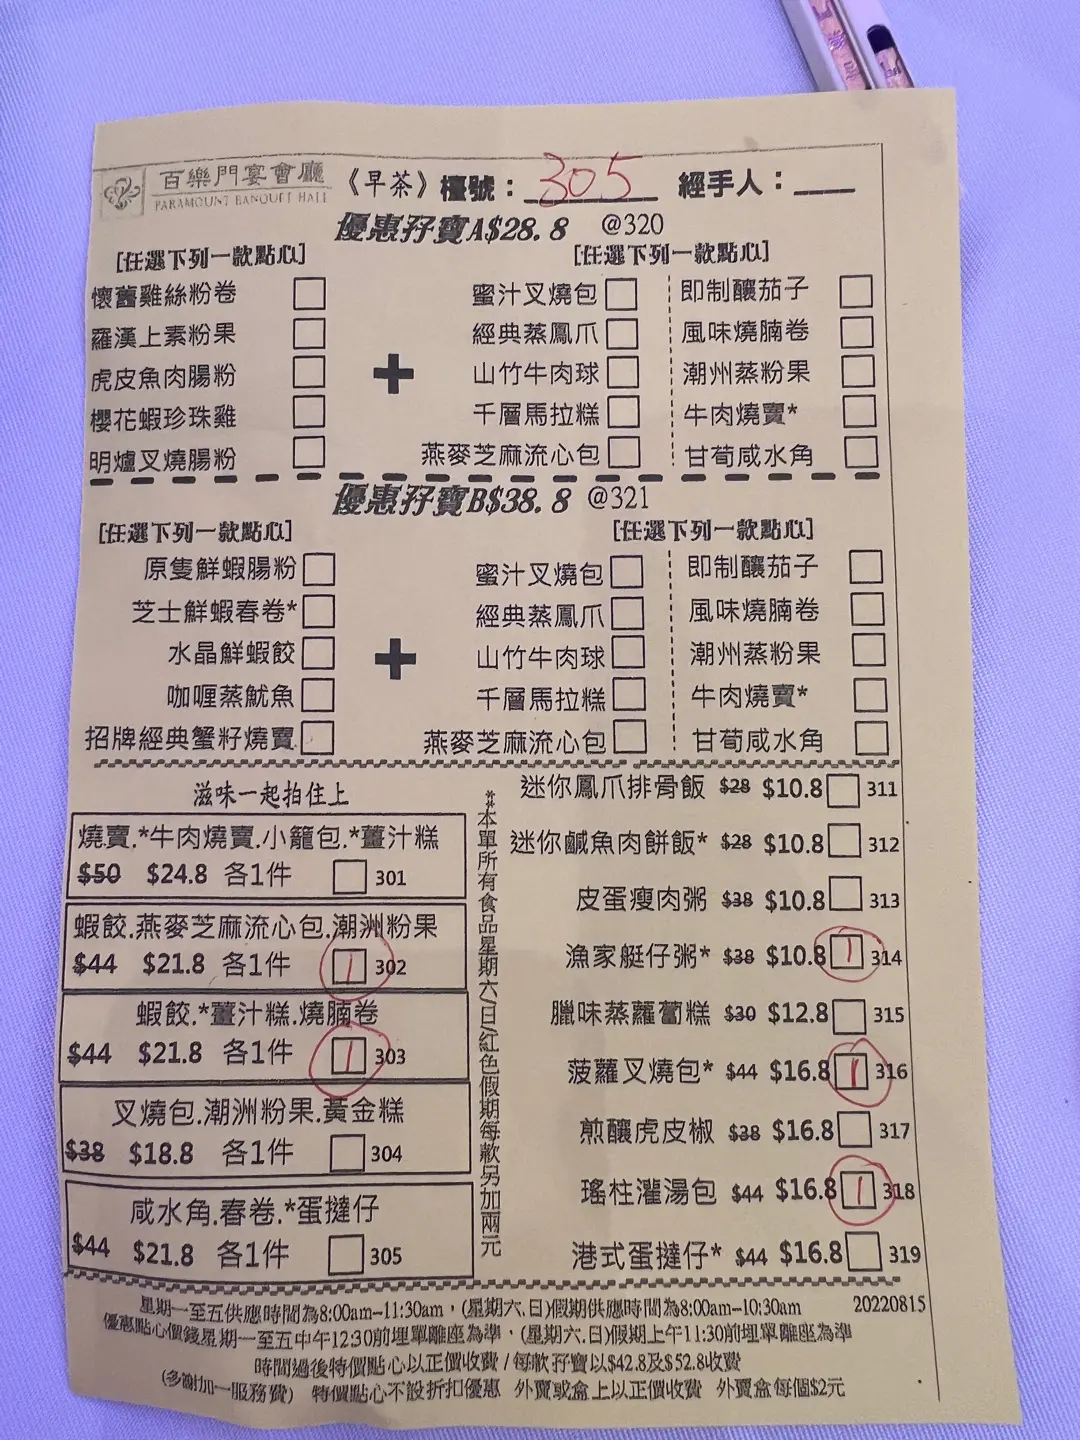 百樂門宴會廳
PARAMOUNT BANQUET HALL
《早茶》檯號：305 經手人：
優惠孖寶A$28.8 @320
[任選下列一款點心]
[任選下列一款點心]
懷舊雞絲粉卷 蜜汁叉燒包 即制釀茄子
羅漢上素粉果 經典蒸鳳爪 風味燒腩卷
虎皮魚肉腸粉 + 山竹牛肉球 潮州蒸粉果
櫻花蝦珍珠雞 千層馬拉糕 牛肉燒賣*
明爐叉燒腸粉 燕麥芝麻流心包 甘荀咸水角
優惠孖寶B$38.8 @321
[任選下列一款點心]
[任選下列一款點心]
原隻鮮蝦腸粉 蜜汁叉燒包 即制釀茄子
芝士鮮蝦春卷* 經典蒸鳳爪 風味燒腩卷
水晶鮮蝦餃 + 山竹牛肉球 潮州蒸粉果
咖喱蒸魷魚 千層馬拉糕 牛肉燒賣*
招牌經典蟹籽燒賣 燕麥芝麻流心包 甘荀咸水角
滋味一起拍住上
燒賣.*牛肉燒賣.小籠包.*薑汁糕
$50 $24.8 各1件 301
蝦餃.燕麥芝麻流心包.潮洲粉果
$44 $21.8 各1件 1 302
蝦餃.*薑汁糕.燒腩卷
$44 $21.8 各1件 1 303
叉燒包.潮洲粉果.黃金糕
$38 $18.8 各1件 304
咸水角.春卷.*蛋撻仔
$44 $21.8 各1件 305
**本單所有食品星期六/日/紅色假期每款另加兩元
迷你鳳爪排骨飯 $28 $10.8 311
迷你鹹魚肉餅飯* $28 $10.8 312
皮蛋瘦肉粥 $38 $10.8 313
漁家艇仔粥* $38 $10.8 1 314
臘味蒸蘿蔔糕 $30 $12.8 315
菠蘿叉燒包* $44 $16.8 1 316
煎釀虎皮椒 $38 $16.8 317
瑤柱灌湯包 $44 $16.8 1 318
港式蛋撻仔* $44 $16.8 319
星期一至五供應時間為8:00am-11:30am，(星期六.日)假期供應時間為8:00am-10:30am 20220815
優惠點心價錢星期一至五中午12:30前埋單離座為準，(星期六.日)假期上午11:30前埋單離座為準
時間過後特價點心以正價收費/每款孖寶以$42.8及$52.8收費
(多謝加一服務費) 特價點心不設折扣優惠 外賣或盒上以正價收費 外賣盒每個$2元